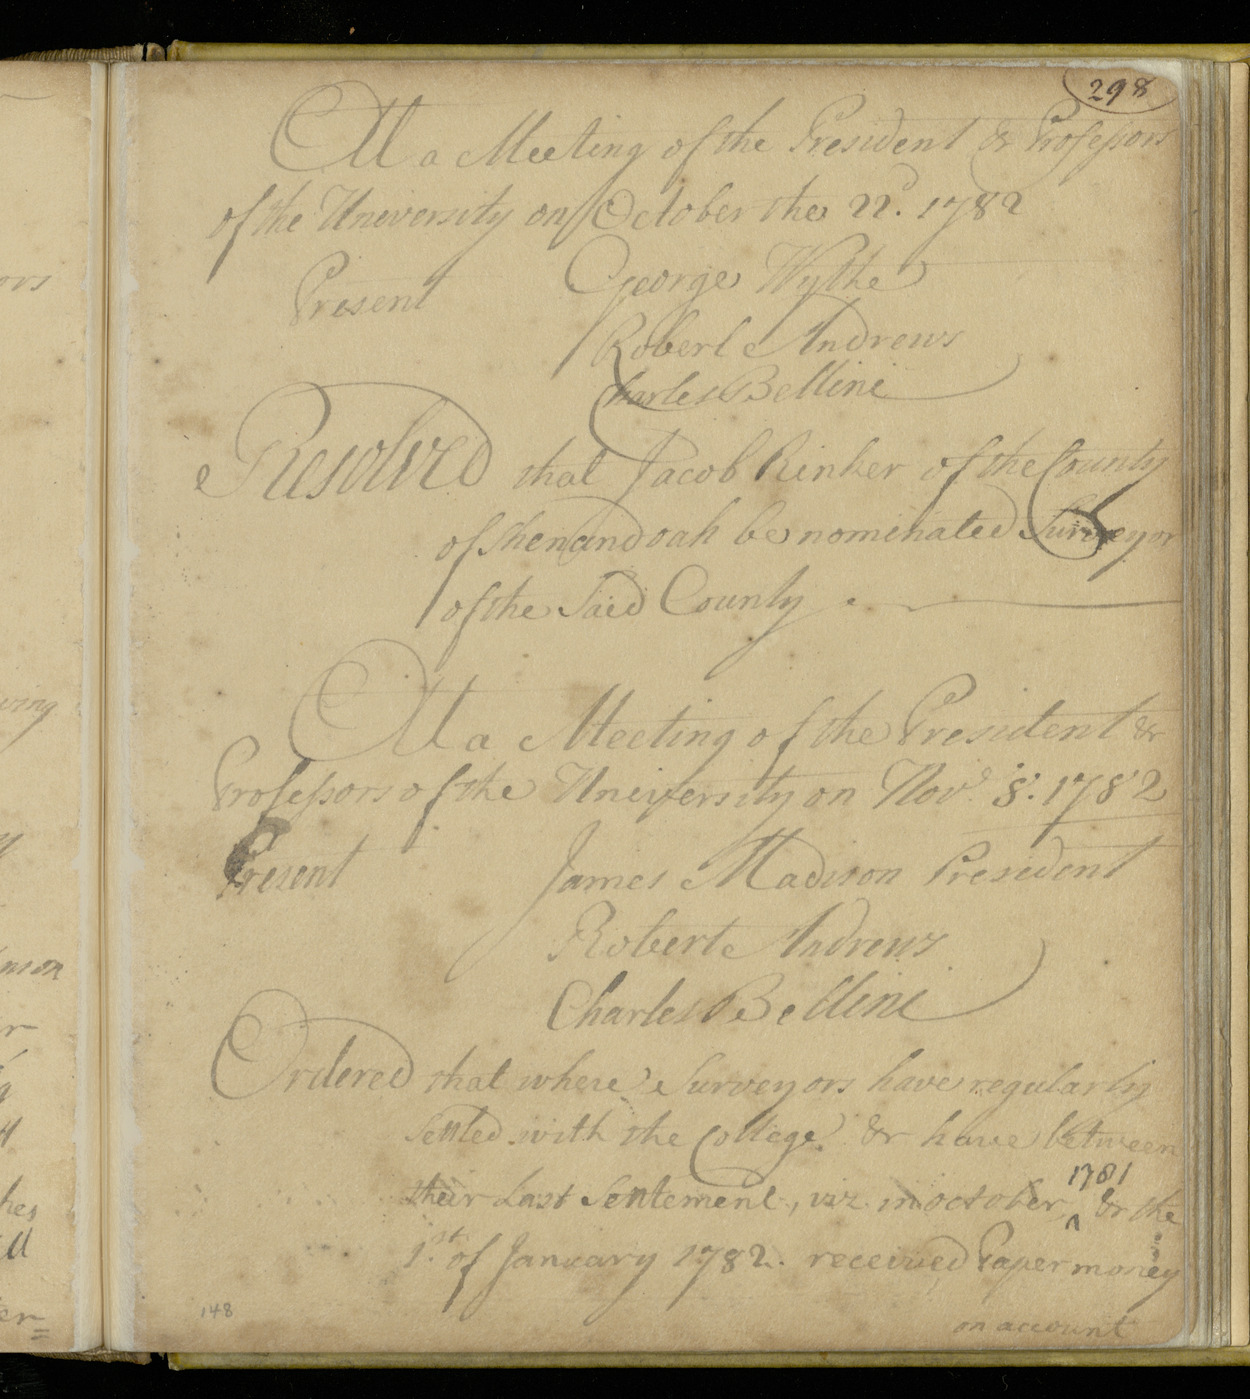 298
At a Meeting of the President & Professors
of the University on October the 22d. 1782
Present George Wythe
Robert Andrews
Charles Bellini
Resolved that Jacob Rinker of the County
of Shenandoah be nominated Surveyor
of the Said County.
At a Meeting of the President &
Professors of the University on Novr 8. 1782
Present James Madison President
Robert Andrews
Charles Bellini
Ordered that where Surveyors have regularly
Settled with the College & have between
their Last Settlement, viz. in October, 1781 & the
1st. of January 1782. received Paper money
on account
148